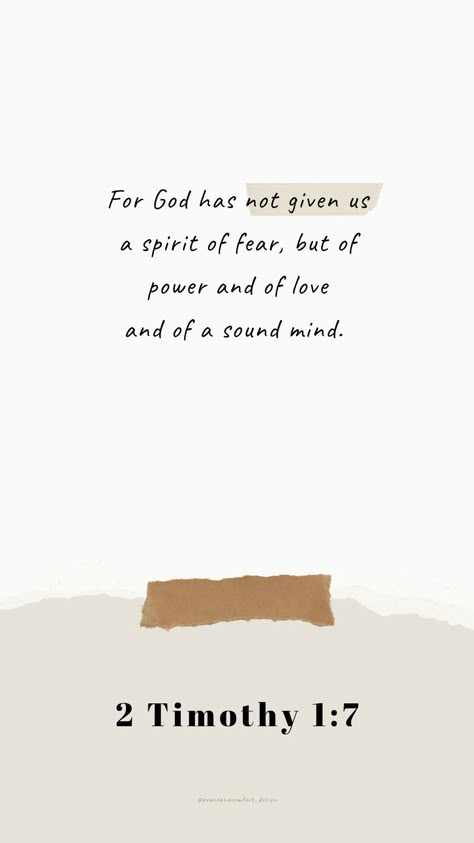 For God has not given us
a spirit of fear, but of
power and of love
and of a sound mind.
2 Timothy 1:7
@peaceandcomfort_design